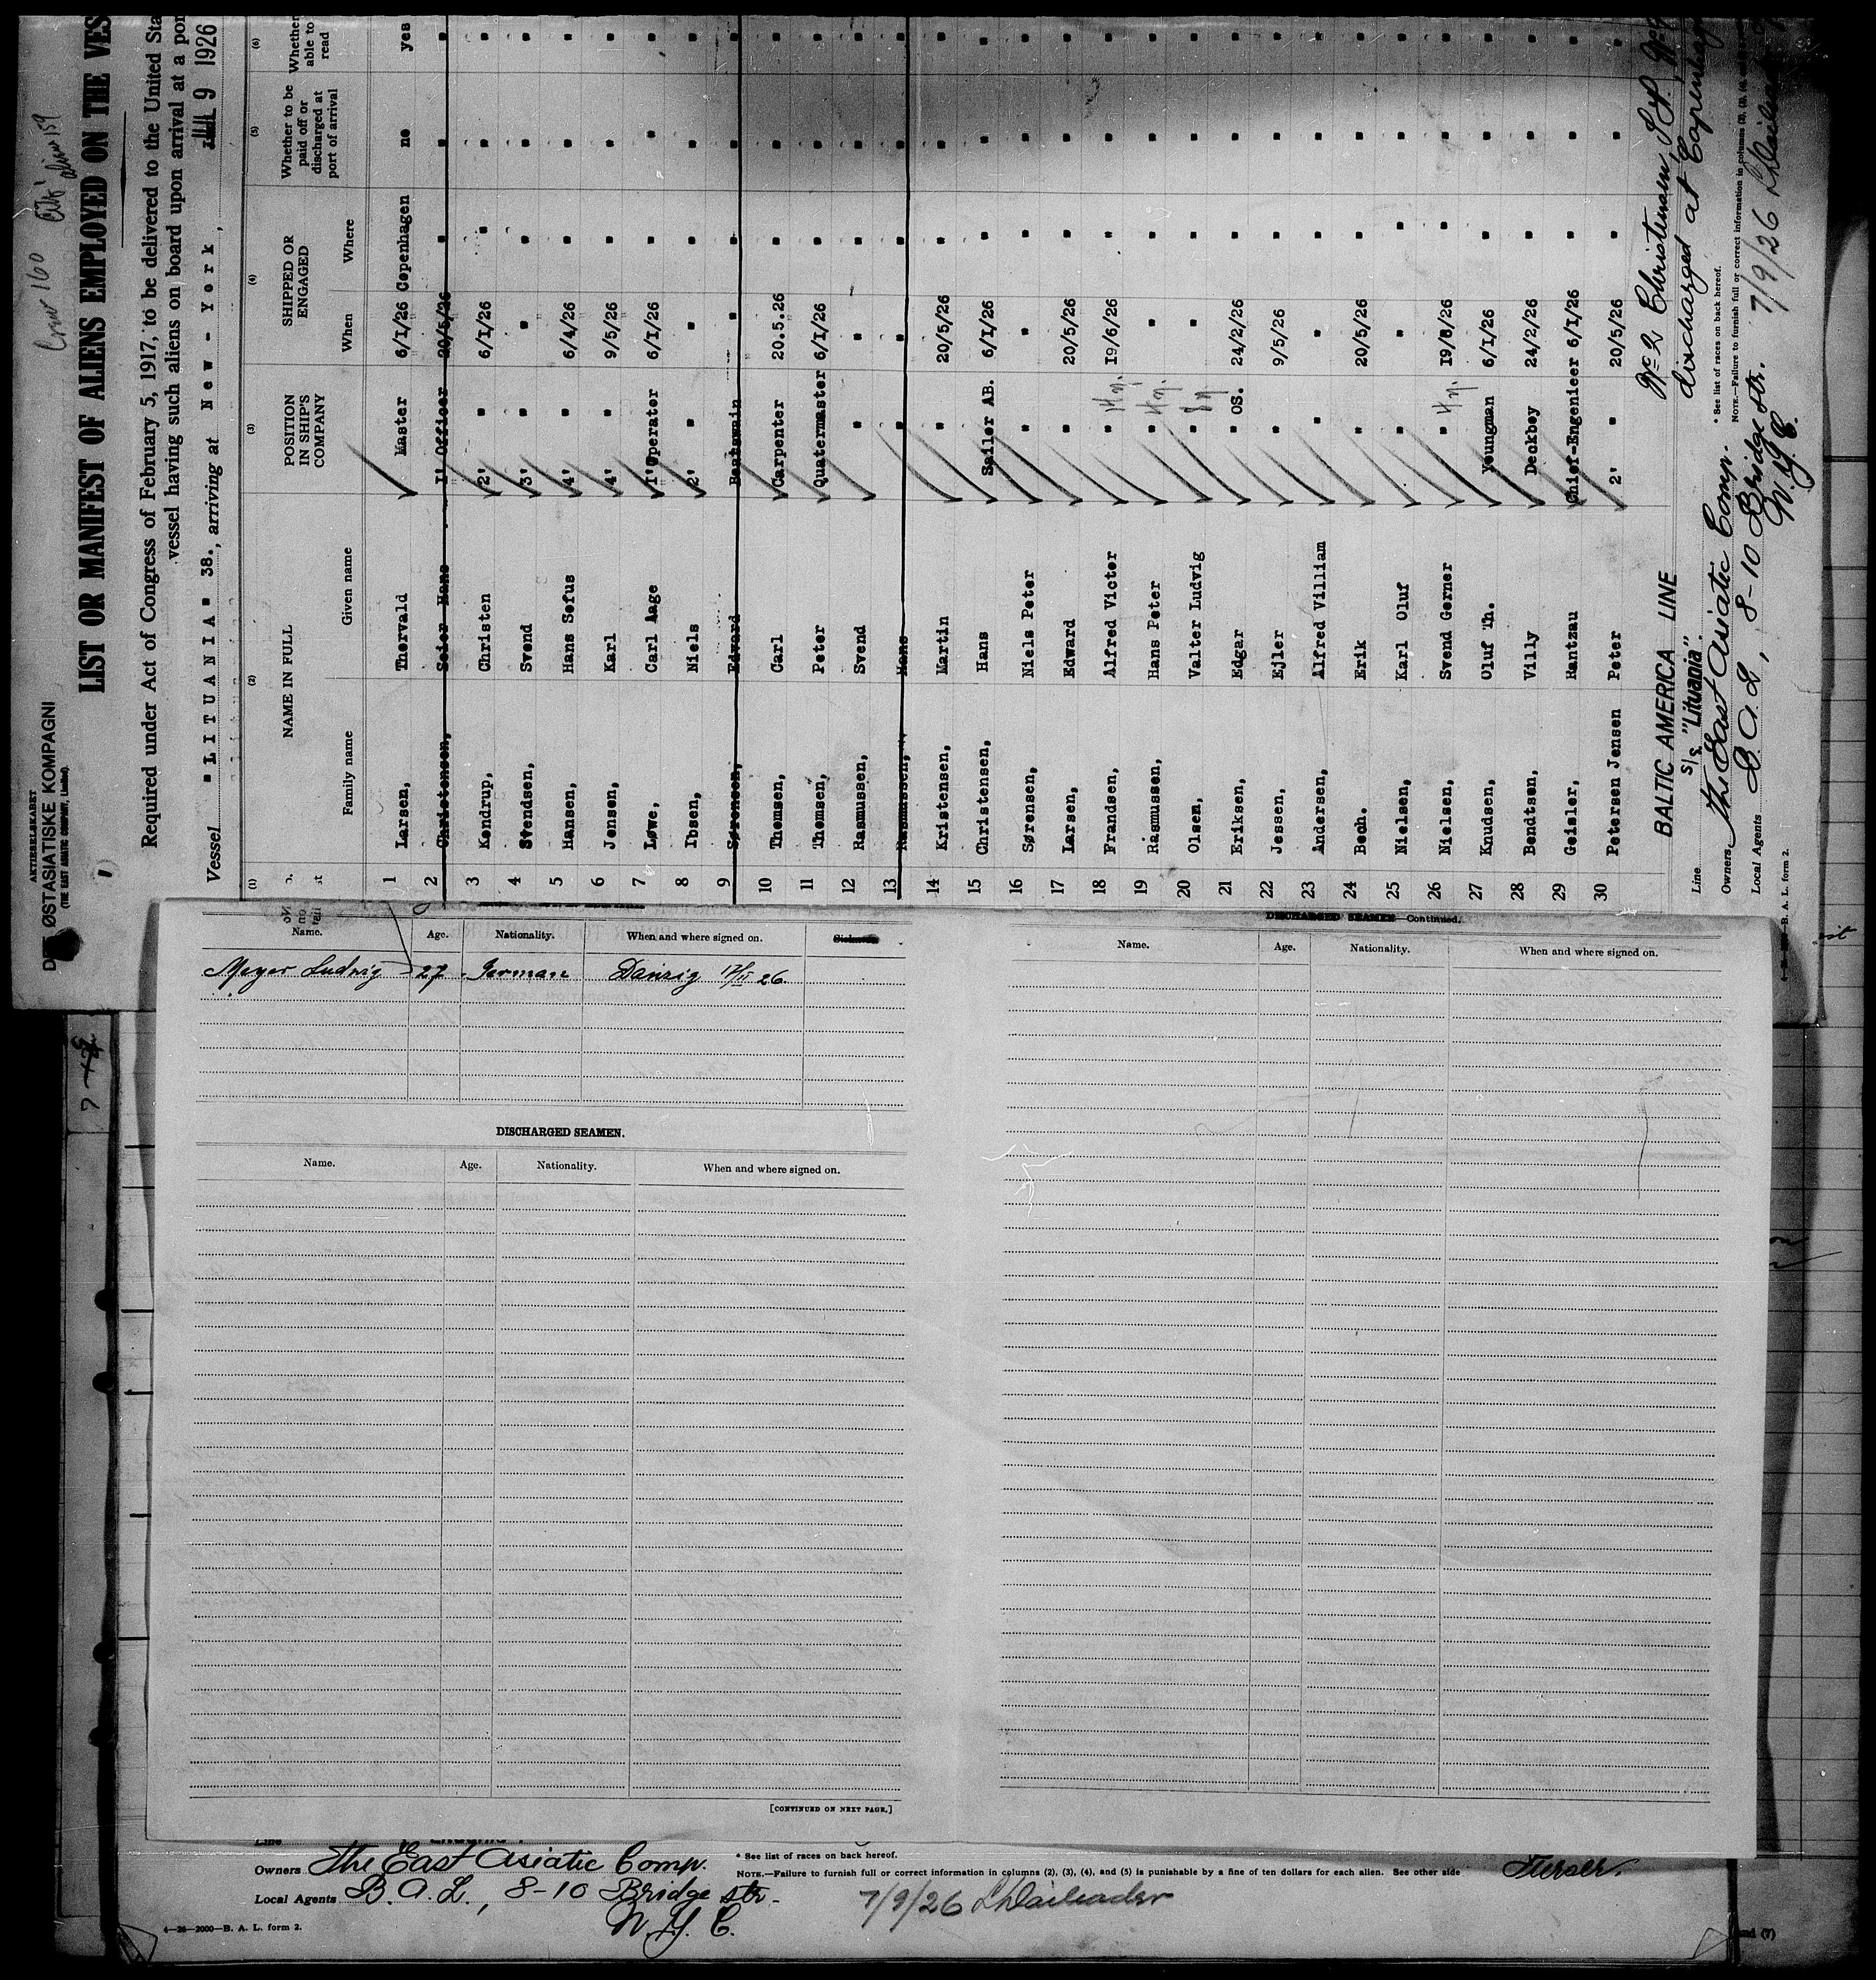 AKTIESELSKABET
ØSTASIATISKE KOMPAGNI
(THE EAST ASIATIC COMPANY, Limited).
Crew 160
aliens 159
LIST OR MANIFEST OF ALIENS EMPLOYED ON THE VES
Required under Act of Congress of February 5, 1917, to be delivered to the United Sta
vessel having such aliens on board upon arrival at a por
Vessel "LITUANIA" 38., arriving at New-York, JUL 9 1926
(1) (2) (3) (4) (5) (6)
NAME IN FULL POSITION IN SHIP'S COMPANY SHIPPED OR ENGAGED Whether to be paid off or discharged at port of arrival Whether able to read
Family name Given name When Where
1 Larsen, Thorvald Master 6/1/26 Copenhagen no yes
2 Christensen, Seier Hans 1' Officer 20/5/26 " " "
3 Kondrup, Christen 2' " 6/1/26 " " "
4 Svendsen, Svend 3' " " " " "
5 Hansen, Hans Sofus 4' " 6/4/26 " " "
6 Jensen, Karl 4' " 9/5/26 " " "
7 Løwe, Carl Aage 1'Operator 6/1/26 " " "
8 Ibsen, Niels 2' " " " " "
9 Sørensen, Edvard Boatswain " " " "
10 Thomsen, Carl Carpenter 20.5.26 " " "
11 Thomsen, Peter Quatermaster 6/1/26 " " "
12 Rasmussen, Svend " " " " "
13 Rasmussen, Hans " " " " "
14 Kristensen, Martin " 20/5/26 " " "
15 Christensen, Hans Sailor AB. 6/1/26 " " "
16 Sørensen, Niels Peter " " " " "
17 Larsen, Edward " 20/5/26 " " "
18 Frandsen, Alfred Victor " 19/6/26 " " "
19 Rasmussen, Hans Peter " " " " "
20 Olsen, Valter Ludvig " " " " "
21 Eriksen, Edgar " OS. 24/2/26 " " "
22 Jessen, Ejler " 9/5/26 " " "
23 Andersen, Alfred Villiam " " " " "
24 Bech. Erik " 20/5/26 " " "
25 Nielsen, Karl Oluf " " " " "
26 Nielsen, Svend Gerner " 19/6/26 " " "
27 Knudsen, Oluf Th. Youngman 6/1/26 " " "
28 Bendtsen, Villy Deckboy 24/2/26 " " "
29 Geisler, Rantzau Chief-Engenieer 6/1/26 " " "
30 Petersen Jensen Peter 2' " 20/5/26 " " "
No 2 Christensen, S.H.
discharged at Copenhag
BALTIC AMERICA LINE
Line S/s. "Lituania".
Owners The East Asiatic Comp.
Local Agents B. A. L., 8-10 Bridge str.
N.Y.C.
* See list of races on back hereof.
NOTE.—Failure to furnish full or correct information in columns (2), (3),
7/9/26
B. A. L. form 2.
Name. Age. Nationality. When and where signed on.
Meyer Ludwig 27 German Danzig 17/II 26.
DISCHARGED SEAMEN.
Name. Age. Nationality. When and where signed on.
[CONTINUED ON NEXT PAGE.]
DISCHARGED SEAMEN—Continued.
Name. Age. Nationality. When and where signed on.
Line
Owners The East Asiatic Comp.
Local Agents B. A. L., 8-10 Bridge str.
N.Y.C.
* See list of races on back hereof.
NOTE.—Failure to furnish full or correct information in columns (2), (3), (4), and (5) is punishable by a fine of ten dollars for each alien. See other side
7/9/26
4—26—2000—B. A. L. form 2.
nd (7)